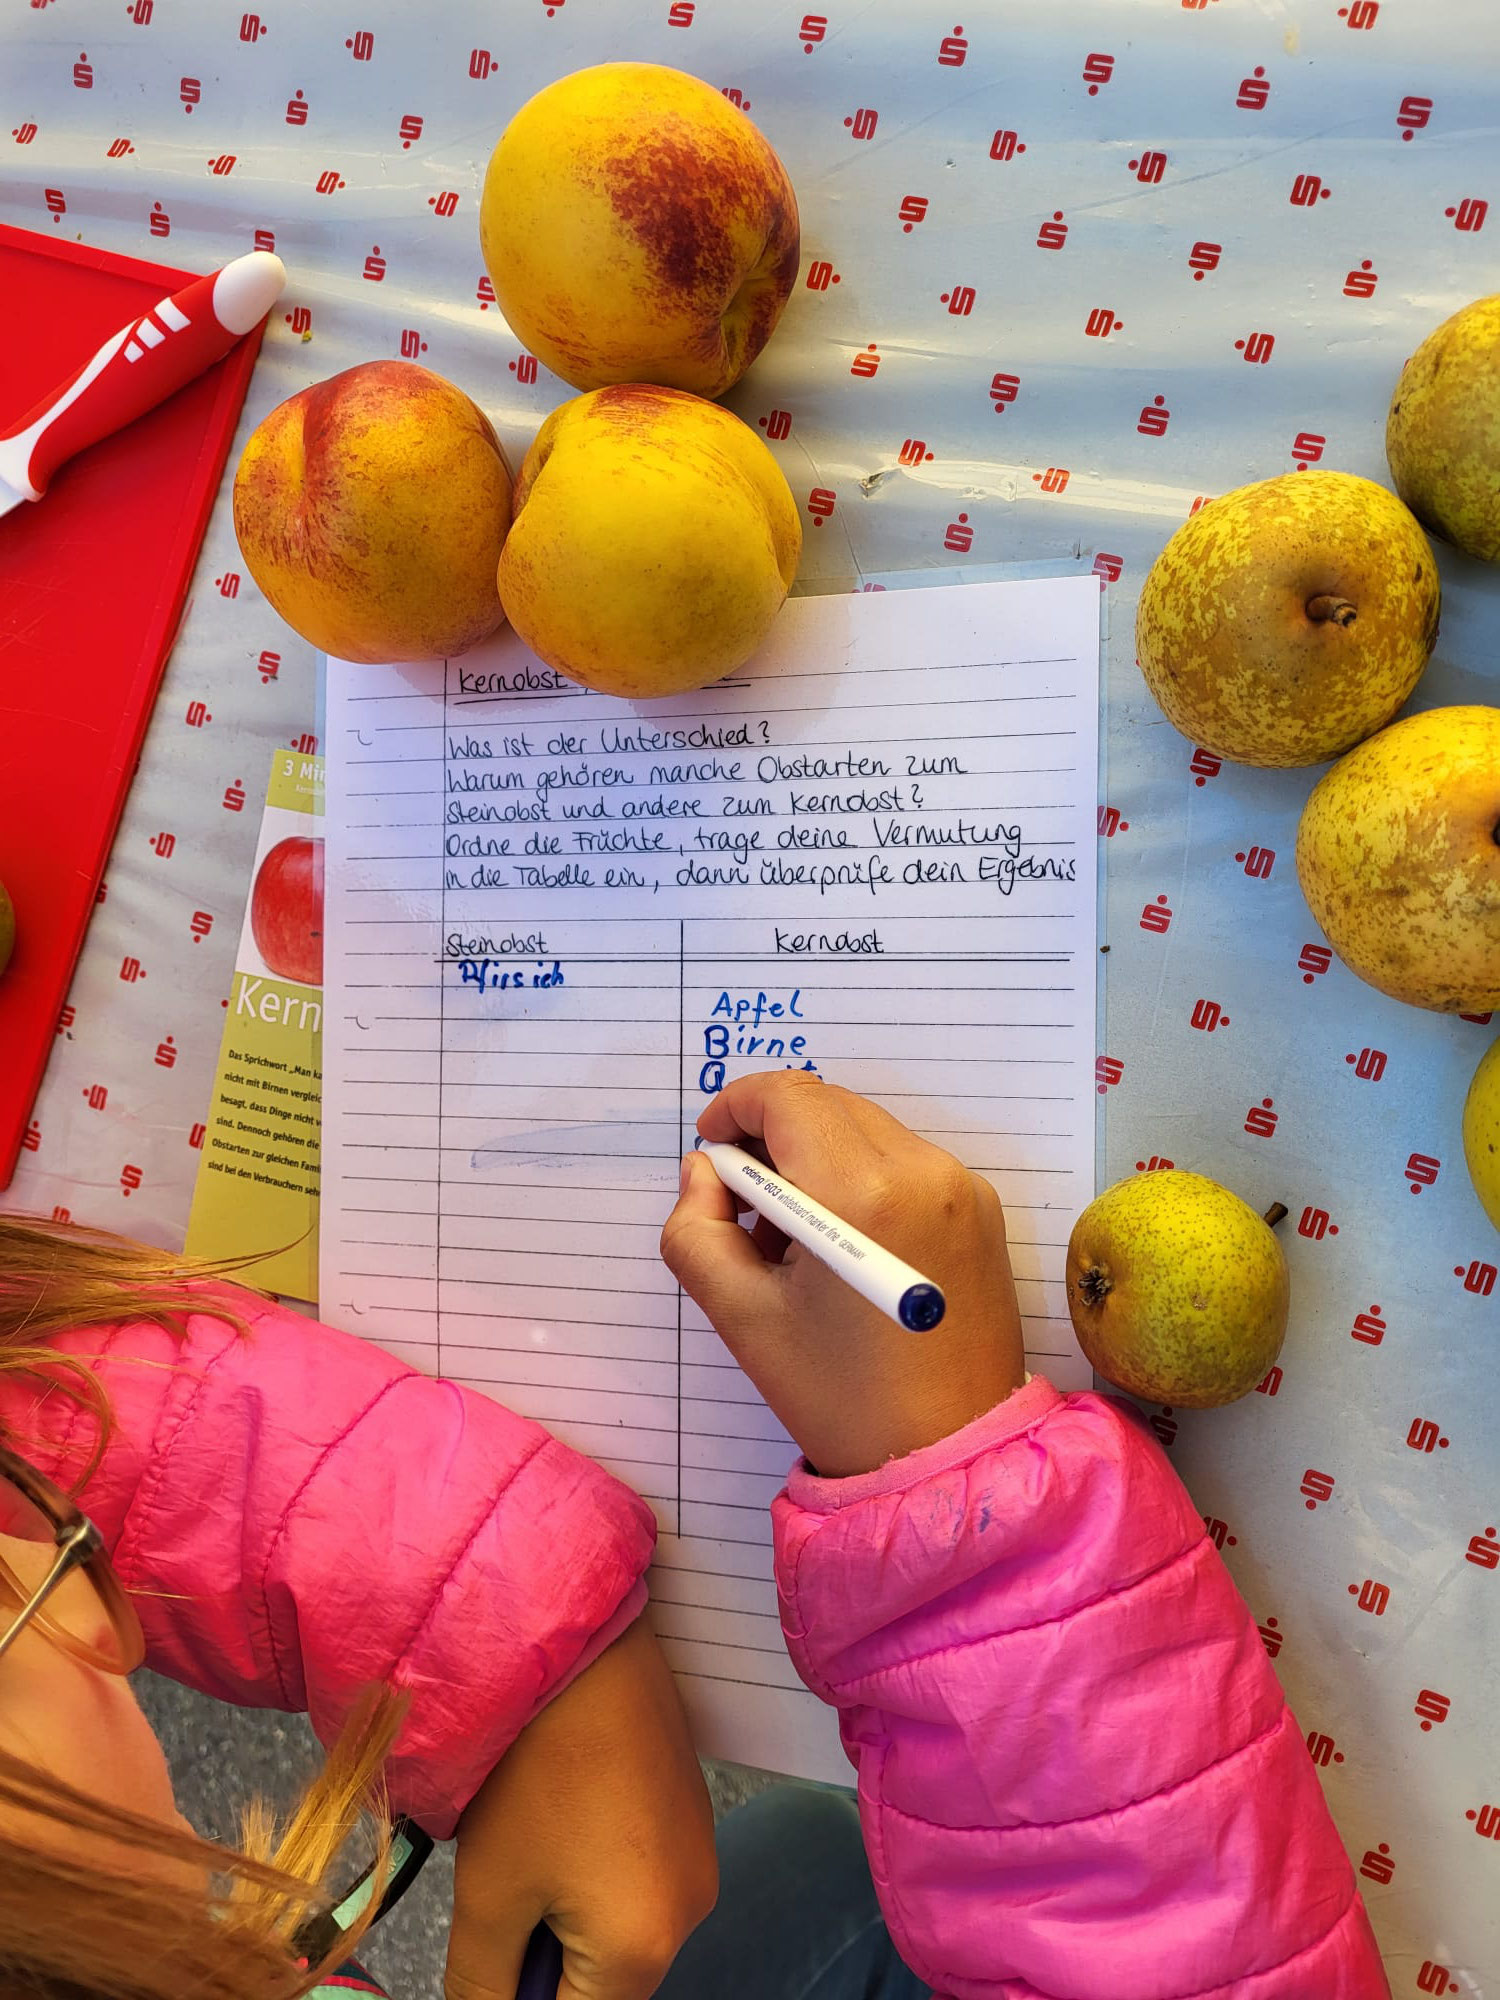 Kernobst
Was ist der Unterschied?
Warum gehören manche Obstarten zum
Steinobst und andere zum Kernobst?
Ordne die Früchte, trage deine Vermutung
in die Tabelle ein, dann überprüfe dein Ergebnis
Steinobst Kernobst
Pfirsich
Apfel
Birne
3 Min
Kern
Das Sprichwort „Man ka
nicht mit Birnen vergleic
besagt, dass Dinge nicht v
sind. Dennoch gehören die
Obstarten zur gleichen Fami
sind bei den Verbrauchern seh
edding 603 whiteboard marker fine GERMANY